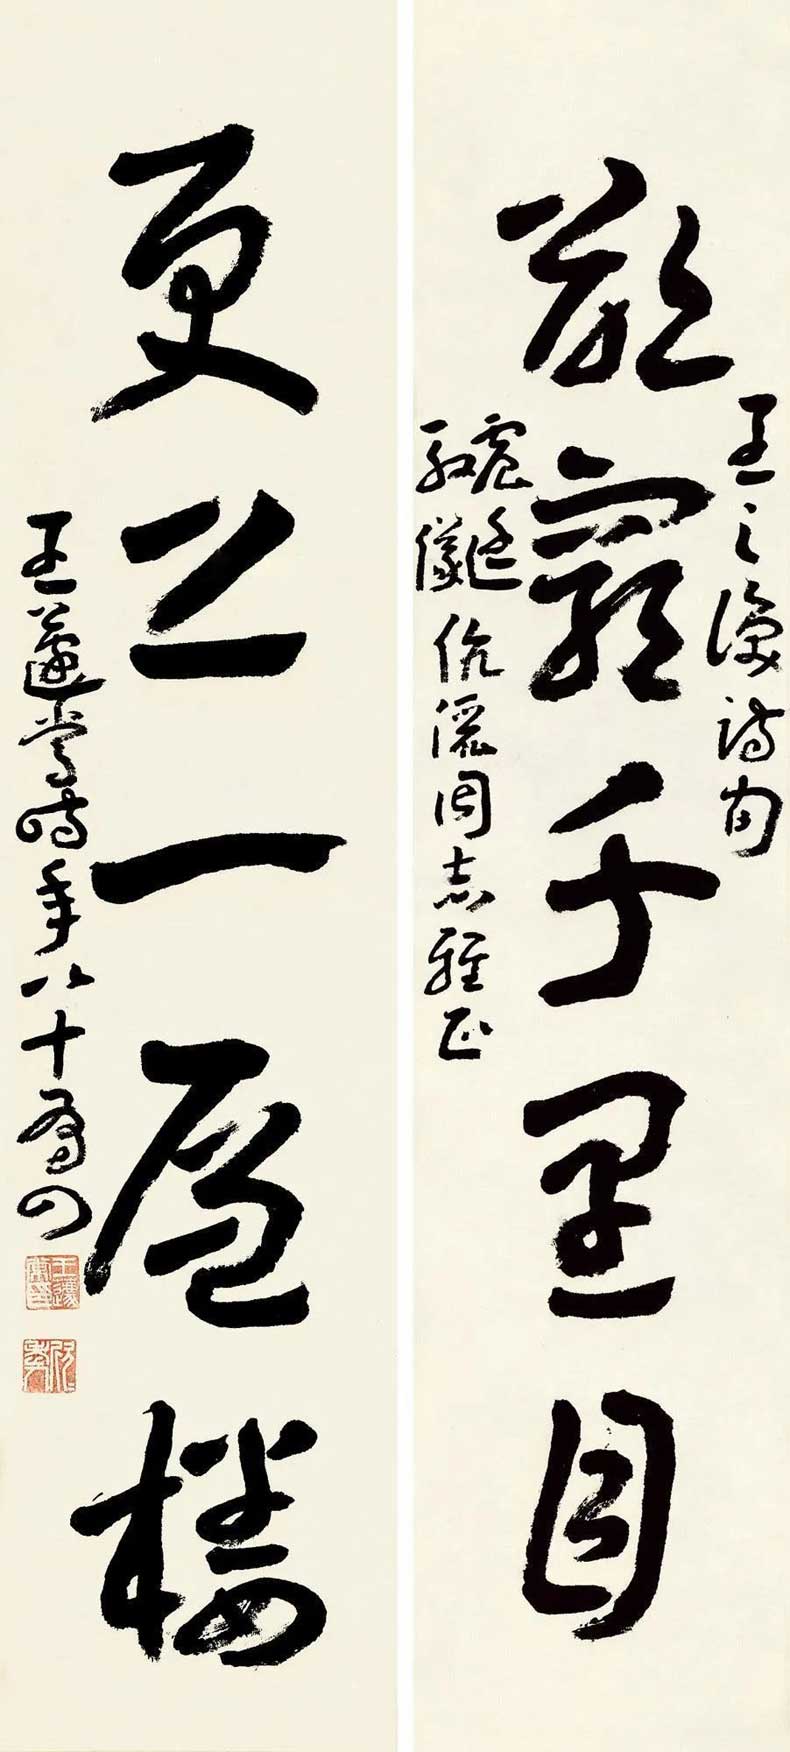 王之渙詩句
欲窮千里目
虎廷
敬儀 伉儷同志雅正
更上一層樓
王蘧常時年八十有四
王蘧常